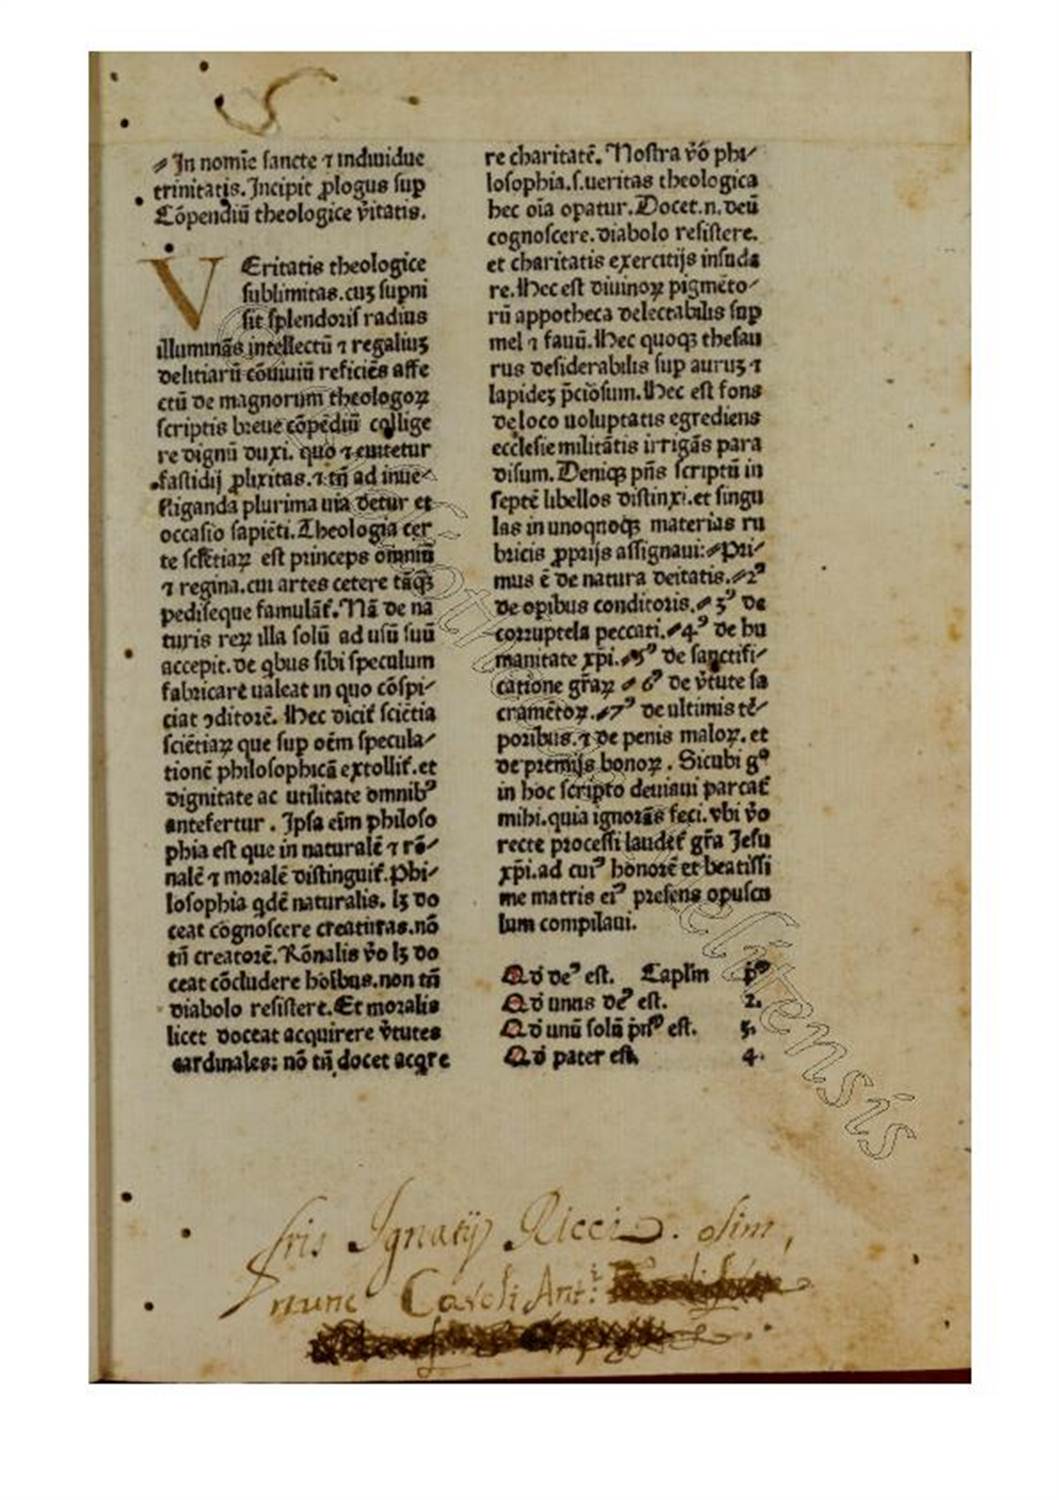 In nomīe sancte ⁊ individue
trinitatis. Incipit ꝓlogus sup
Cōpendiū theologice v̄itatis.
VEritatis theologice
sublimitas. cuȝ supni
sit splendoris radius
illuminās intellectū ⁊ regaliuȝ
delitiarū cōuiuiū reficiēs affe
ctū de magnorum theologoꝝ
scriptis breue cōpēdiū collige
re dignū duxi. quo ⁊ euitetur
fastidij ꝓlixitas. ⁊ tn̄ ad inue-
stiganda plurima uia detur et
occasio sapiēti. Theologia cer
te sciētiaꝝ est princeps omniū
⁊ regina. cui artes cetere tāqȝ
pedisseque famulāt̄. Nā de na
turis reꝝ illa solū ad usū suū
accepit. de qbus sibi speculum
fabricare ualeat in quo cōspi-
ciat ꝯditorē. Hec dicit̄ sciētia
sciētiaꝝ que sup oēm specula-
tionē philosophicā extollit̄. et
dignitate ac utilitate omnibꝰ
antefertur. Ipsa eīm philoso
phia est que in naturalē ⁊ rō-
nalē ⁊ moralē distinguit̄. Phi-
losophia qdē naturalis. lȝ do
ceat cognoscere creaturas. nō
tn̄ creatorē. Rōnalis v̄o lȝ do
ceat cōcludere hoībus. non tn̄
diabolo resistere. Et moralis
licet doceat acquirere v̄tutes
cardinales: nō tn̄ docet acqre
re charitatē. Nostra v̄o phi-
losophia. s. ueritas theologica
hec oīa opatur. Docet. n. deū
cognoscere. diabolo resistere.
et charitatis exercitijs insuda
re. Hec est diuinoꝝ pigmēto-
rū appotheca delectabilis sup
mel ⁊ fauū. Hec quoqȝ thesau
rus desiderabilis sup auruȝ ⁊
lapideȝ p̄ciosum. Hec est fons
de loco uoluptatis egrediens
ecclesie militātis irrigās para
disum. Deniqȝ pn̄s scriptū in
septē libellos distinxi. et singu
las in unoqnoqȝ materias ru
bricis ꝓprijs assignaui: Pri-
mus ē de natura deitatis. 2ꝰ
de opibus conditoris. 3ꝰ de
corruptela peccati. 4ꝰ de hu
manitate xp̄i. 5ꝰ de sanctifi-
catione gr̄aꝝ 6ꝰ de v̄tute sa
cramētoꝝ. 7ꝰ de ultimis tē-
poribus. ⁊ de penis maloꝝ. et
de premijs bonoꝝ. Sicubi gº
in hoc scripto deuiaui parcat̄
mihi. quia ignorās feci. vbi v̄o
recte processi laudet̄ gr̄a Jesu
xp̄i. ad cuiꝰ honorē et beatissi
me matris eiꝰ presens opuscu
lum compilaui.
Qd deꝰ est. Caplm pº
Qd unus deꝰ est. 2.
Qd unū solū pn̄sº est. 3.
Qd pater est. 4.
fris Ignatij Ricci. olim,
nunc Caroli Ant: